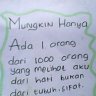 Mungkin Hanya
Ada 1 orang
dari 1000 orang
yang melihat aku
dari hati bukan
dari tubuh. sifat.